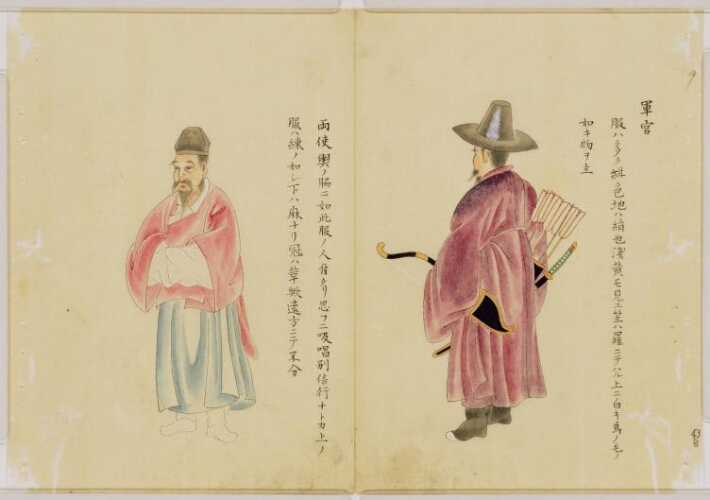 軍官
服ハ多ク緋色地ハ絹也淺黄モ見ユ笠ハ羅ニテハル上ニ白キ鳥ノ毛ノ
如キ物ヲ立
両使輿ノ脇ニ如此服ノ人付タリ思フニ吸唱別信行ナトカ上ノ
服ハ練ノ如シ下ハ麻ナリ冠ハ草歟遠方ニテ不分
9